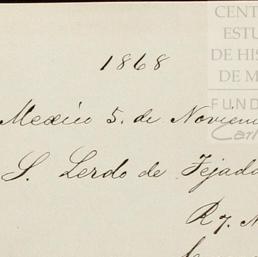 CENT
ESTU
DE HIS
DE M
FUND
Carl
1868
Mexico 5. de Noviem
S. Lerdo de Tejada
R 7. N